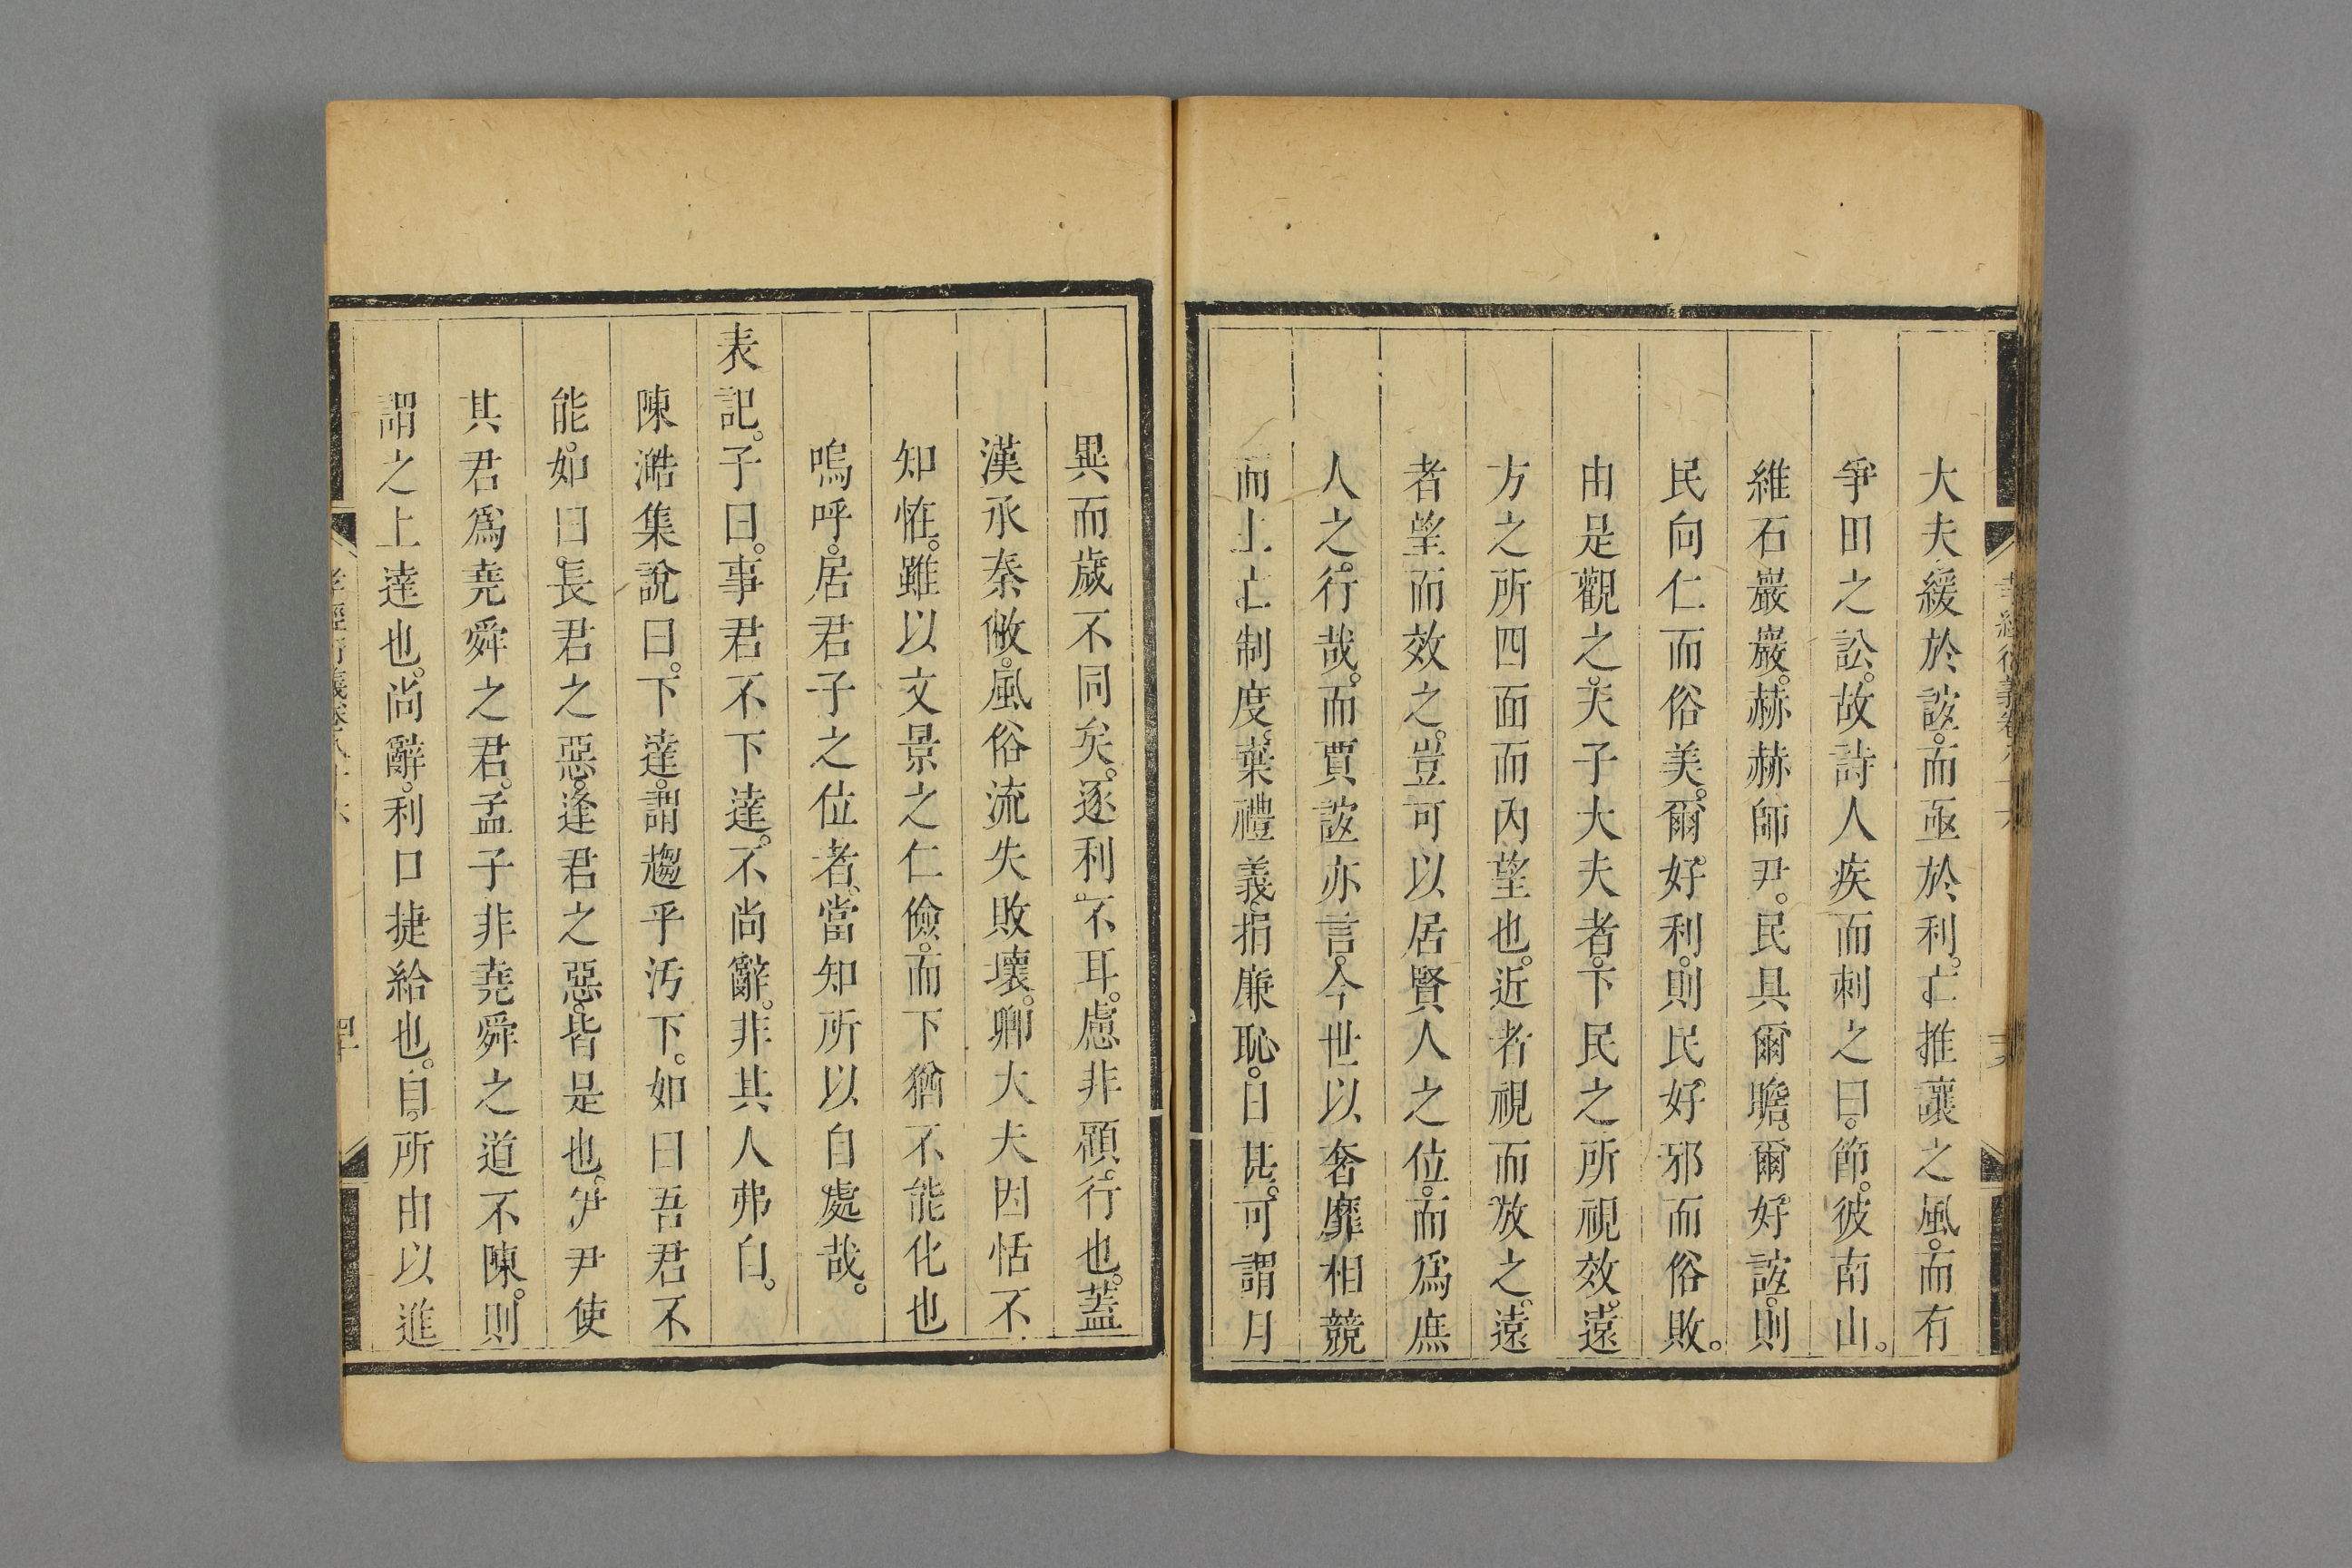 大夫緩於誼。而亟於利。亡推讓之風。而有
爭田之訟。故詩人疾而刺之曰。節彼南山。
維石巖巖。赫赫師尹。民具爾瞻。爾好誼。則
民向仁而俗美。爾好利。則民好邪而俗敗。
由是觀之。天子大夫者。下民之所視效。遠
方之所四面而內望也。近者視而放之。遠
者望而效之。豈可以居賢人之位。而爲庶
人之行哉。而賈誼亦言。今世以奢靡相競。
而上亡制度。棄禮義。捐廉恥。日甚。可謂月
異而歲不同矣。逐利不耳。慮非顧行也。蓋
漢承秦敝。風俗流失敗壞。卿大夫因恬不
知恠。雖以文景之仁儉。而下猶不能化也
嗚呼。居君子之位者。當知所以自處哉。
表記。子曰。事君不下達。不尚辭。非其人弗自。
陳澔集說曰。下達。謂趨乎汚下。如曰吾君不
能。如曰。長君之惡。逢君之惡。皆是也。伊尹使
其君爲堯舜之君。孟子非堯舜之道不陳。則
謂之上達也。尚辭。利口捷給也。自。所由以進